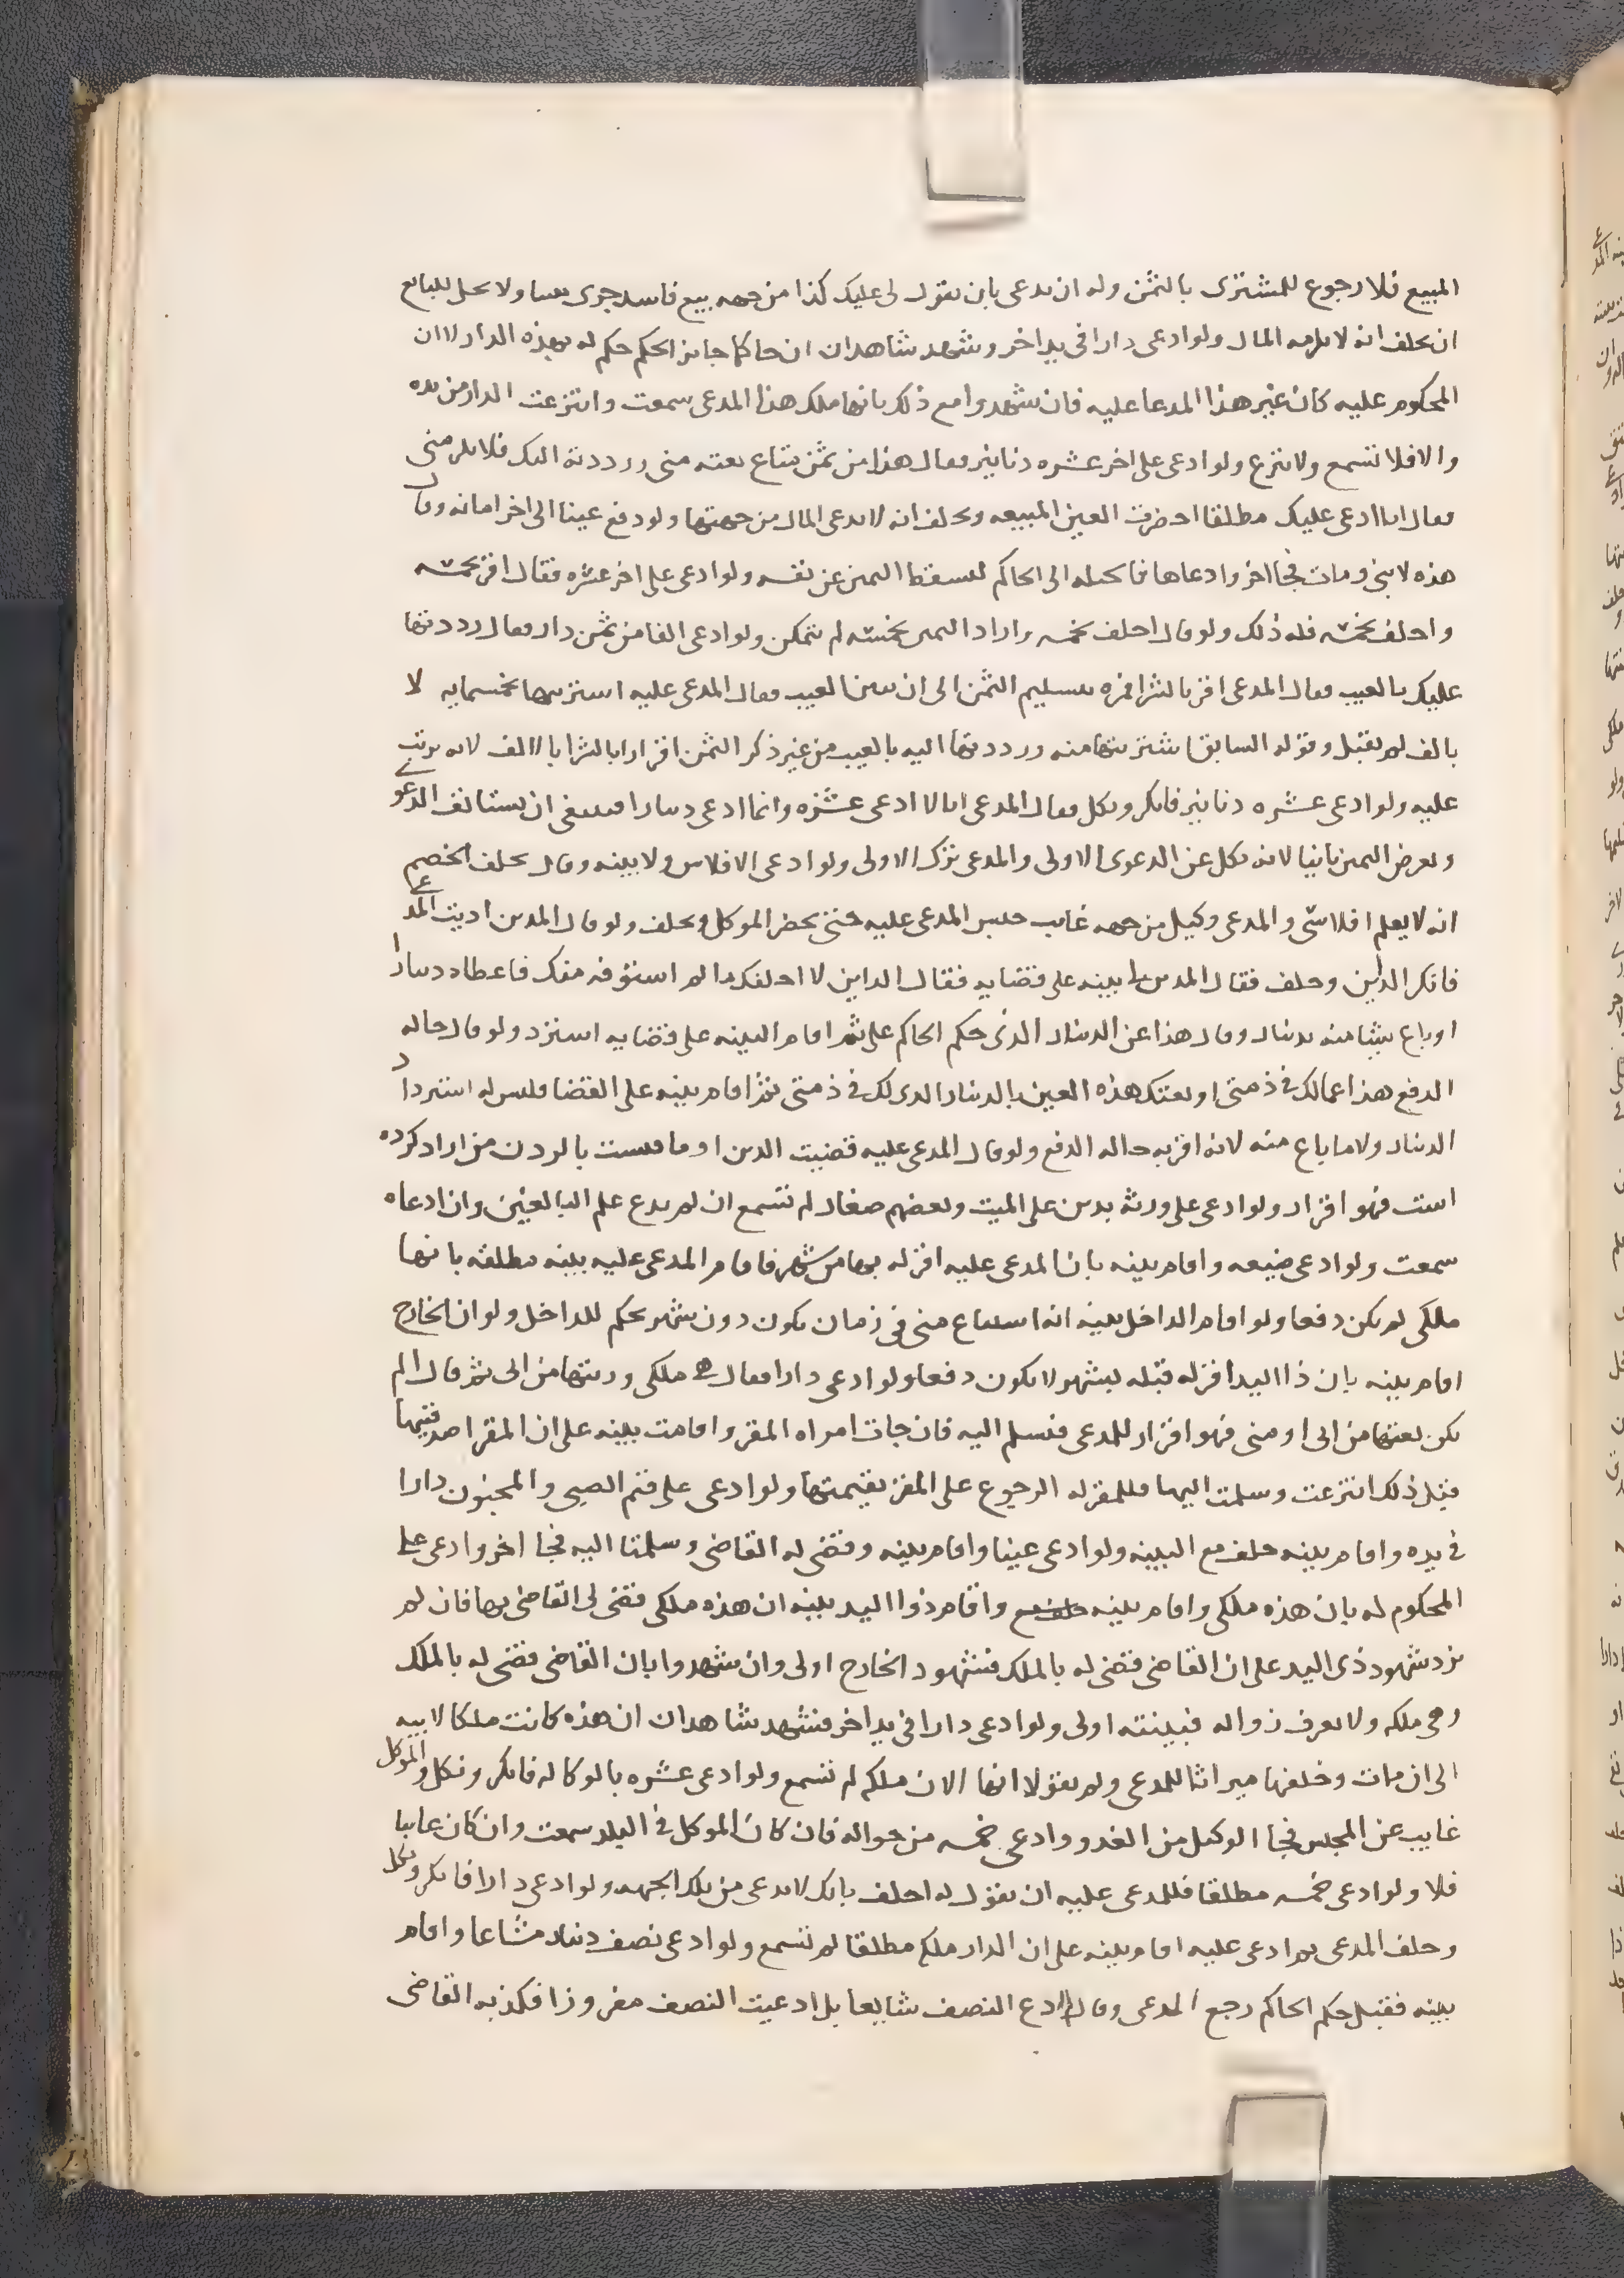 المبيع فلا رجوع للمشترى بالثمن وله ان يدعى بان يقول لى عليك كذا من جهه بيع فاسد جرى بيننا ولا يحل للبايع
ان يحلف انه لا يلزمه المال ولو ادعى دارا فى يد اخر وشهد شاهدان ان حاكما جايز الحكم حكم له بهذه الدار لا ان
المحكوم عليه كان غير هذا المدعا عليه فان شهدوا مع ذلك بانها ملك هذا المدعى سمعت وانتزعت الدار من يده
والا فلا تسمع ولا ينزع ولو ادعى على اخر عشره دنانير فقال هذا من ثمن متاع بعته منى ورددته اليك فلا يلزمنى
فقال انا ادعى عليك مطلقا احضرت العين المبيعه وتحلف انه لا يدعى المال من جهتها ولو دفع عينا الى اخر امانه وقال
هذه لابنى ومات فجا اخر وادعاها فالحيله الى الحاكم لتسقط اليمين عن نفسه ولو ادعى على اخر عشره فقال اقر بخمسه
واحلف بخمسه فله ذلك ولو قال احلف بخمسه واراد اليمين بخمسه لم يتمكن ولو ادعى الفا من ثمن دار فقال رددتها
عليك بالعيب فقال المدعى اقر بالشرا فمره بتسليم الثمن الى ان يبين العيب فقال المدعى عليه اشتريتها بخمسمايه لا
بالف لم يقبل وقوله السابق اشتريتها منه ورددتها اليه بالعيب من غير ذكر الثمن اقرارا بالشرا بالالف لانه يرتب
عليه ولو ادعى عشره دنانير فانكر ونكل فقال المدعى انا لا ادعى عشره وانما ادعى دينارا فينبغى ان يستانف الدعوى
ويعرض اليمين ثانيا لانه نكل عن الدعوى الاولى والمدعى ترك الاولى ولو ادعى الافلاس ولا بينه وقال يحلف الخصم
انه لا يعلم افلاسى والمدعى وكيل من جهه غايب حبس المدعى عليه حتى يحضر الموكل ويحلف ولو قال المدين اديت المدعى
فانكر الداين وحلف فقال المدين لى بينه على قضايه فقال الداين لا احلفك ما لم استوفه منك فاعطاه دينارا
او باع شيئا منه بدينار وقال هذا عن الدينار الذى حكم الحاكم على ثم اقام البينه على قضايه استرد ولو قال حاله
الدفع هذا عما لك فى ذمتى او بعتك هذه العين بالدينار الذى لك فى ذمتى ثم اقام بينه على القضا فليس له استرداد
الدينار ولا ما باع منه لانه اقر به حاله الدفع ولو قال المدعى عليه قضيت الدين او بالردن من اراد كرده
است فهو اقرار ولو ادعى على ورثه بدين على الميت وبعضهم صغار لم تسمع ان لم يدع علم البالغين وان ادعاه
سمعت ولو ادعى ضيعه واقام بينه بان المدعى عليه اقر له بها من شهر فاقام المدعى عليه بينه مطلقه بانها
ملكى لم يكن دفعا ولو اقام الداخل بينه انه ابتاع منى فى زمان يكون دون شهر يحكم للداخل ولو ان الخارج
اقام بينه بان ذا اليد اقر له قبله بشهر لا يكون دفعا ولو ادعى دارا فقال هى ملكى ورثتها من ابى ثم قال الم
يكن بعتها من ابى او منى فهو اقرار للمدعى فتسلم اليه فان جات امراه المقر واقامت بينه على ان المقر اصدقنيها
قبل ذلك انتزعت وسلمت اليها فللمقر له الرجوع على المقر بقيمتها ولو ادعى على قيم الصبى والمجنون دارا
فى يده واقام بينه حلف مع البينه ولو ادعى عينا واقام بينه وقضى له القاضى وسلمنا اليه فجا اخر وادعى على
المحكوم له بان هذه ملكى واقام بينه واقام ذوا اليد بينه ان هذه ملكى قضى لى القاضى بها فان لم
يزد شهود ذى اليد على ان القاضى قضى له بالملك فشهود الخارج اولى وان شهدوا بان القاضى قضى له بالملك
وهى ملكه ولا يعرف زواله فبينته اولى ولو ادعى دارا فى يد اخر فشهد شاهدان ان هذه كانت ملكا لابيه
الى ان مات وخلفها ميراثا للمدعى ولم يقولا انها الان ملكه لم تسمع ولو ادعى عشره بالوكاله فانكر ونكل والموكل
غايب عن المجلس فجا الوكيل من الغد وادعى خمسه من حواله فان كان الموكل فى البلد سمعت وان كان غايبا
فلا ولو ادعى خمسه مطلقا فللمدعى عليه ان يقول له احلف بانك لا تدعى من تلك الجهه ولو ادعى دارا فانكر ونكل
وحلف المدعى ثم ادعى عليه اقام بينه على ان الدار ملكى مطلقا لم تسمع ولو ادعى نصف دينار مشاعا واقام
بينه فقبل حكم الحاكم رجع المدعى وقال لم ادع النصف شايعا بل ادعيت النصف مفروزا فكذبه القاضى